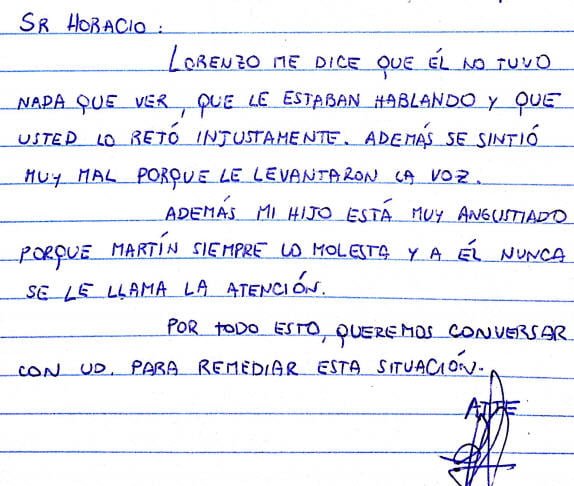 SR HORACIO:
LORENZO ME DICE QUE ÉL NO TUVO
NADA QUE VER, QUE LE ESTABAN HABLANDO Y QUE
USTED LO RETÓ INJUSTAMENTE. ADEMÁS SE SINTIÓ
MUY MAL PORQUE LE LEVANTARON LA VOZ.
ADEMÁS MI HIJO ESTÁ MUY ANGUSTIADO
PORQUE MARTÍN SIEMPRE LO MOLESTA Y A ÉL NUNCA
SE LE LLAMA LA ATENCIÓN.
POR TODO ESTO, QUEREMOS CONVERSAR
CON UD. PARA REMEDIAR ESTA SITUACIÓN.
ATTE